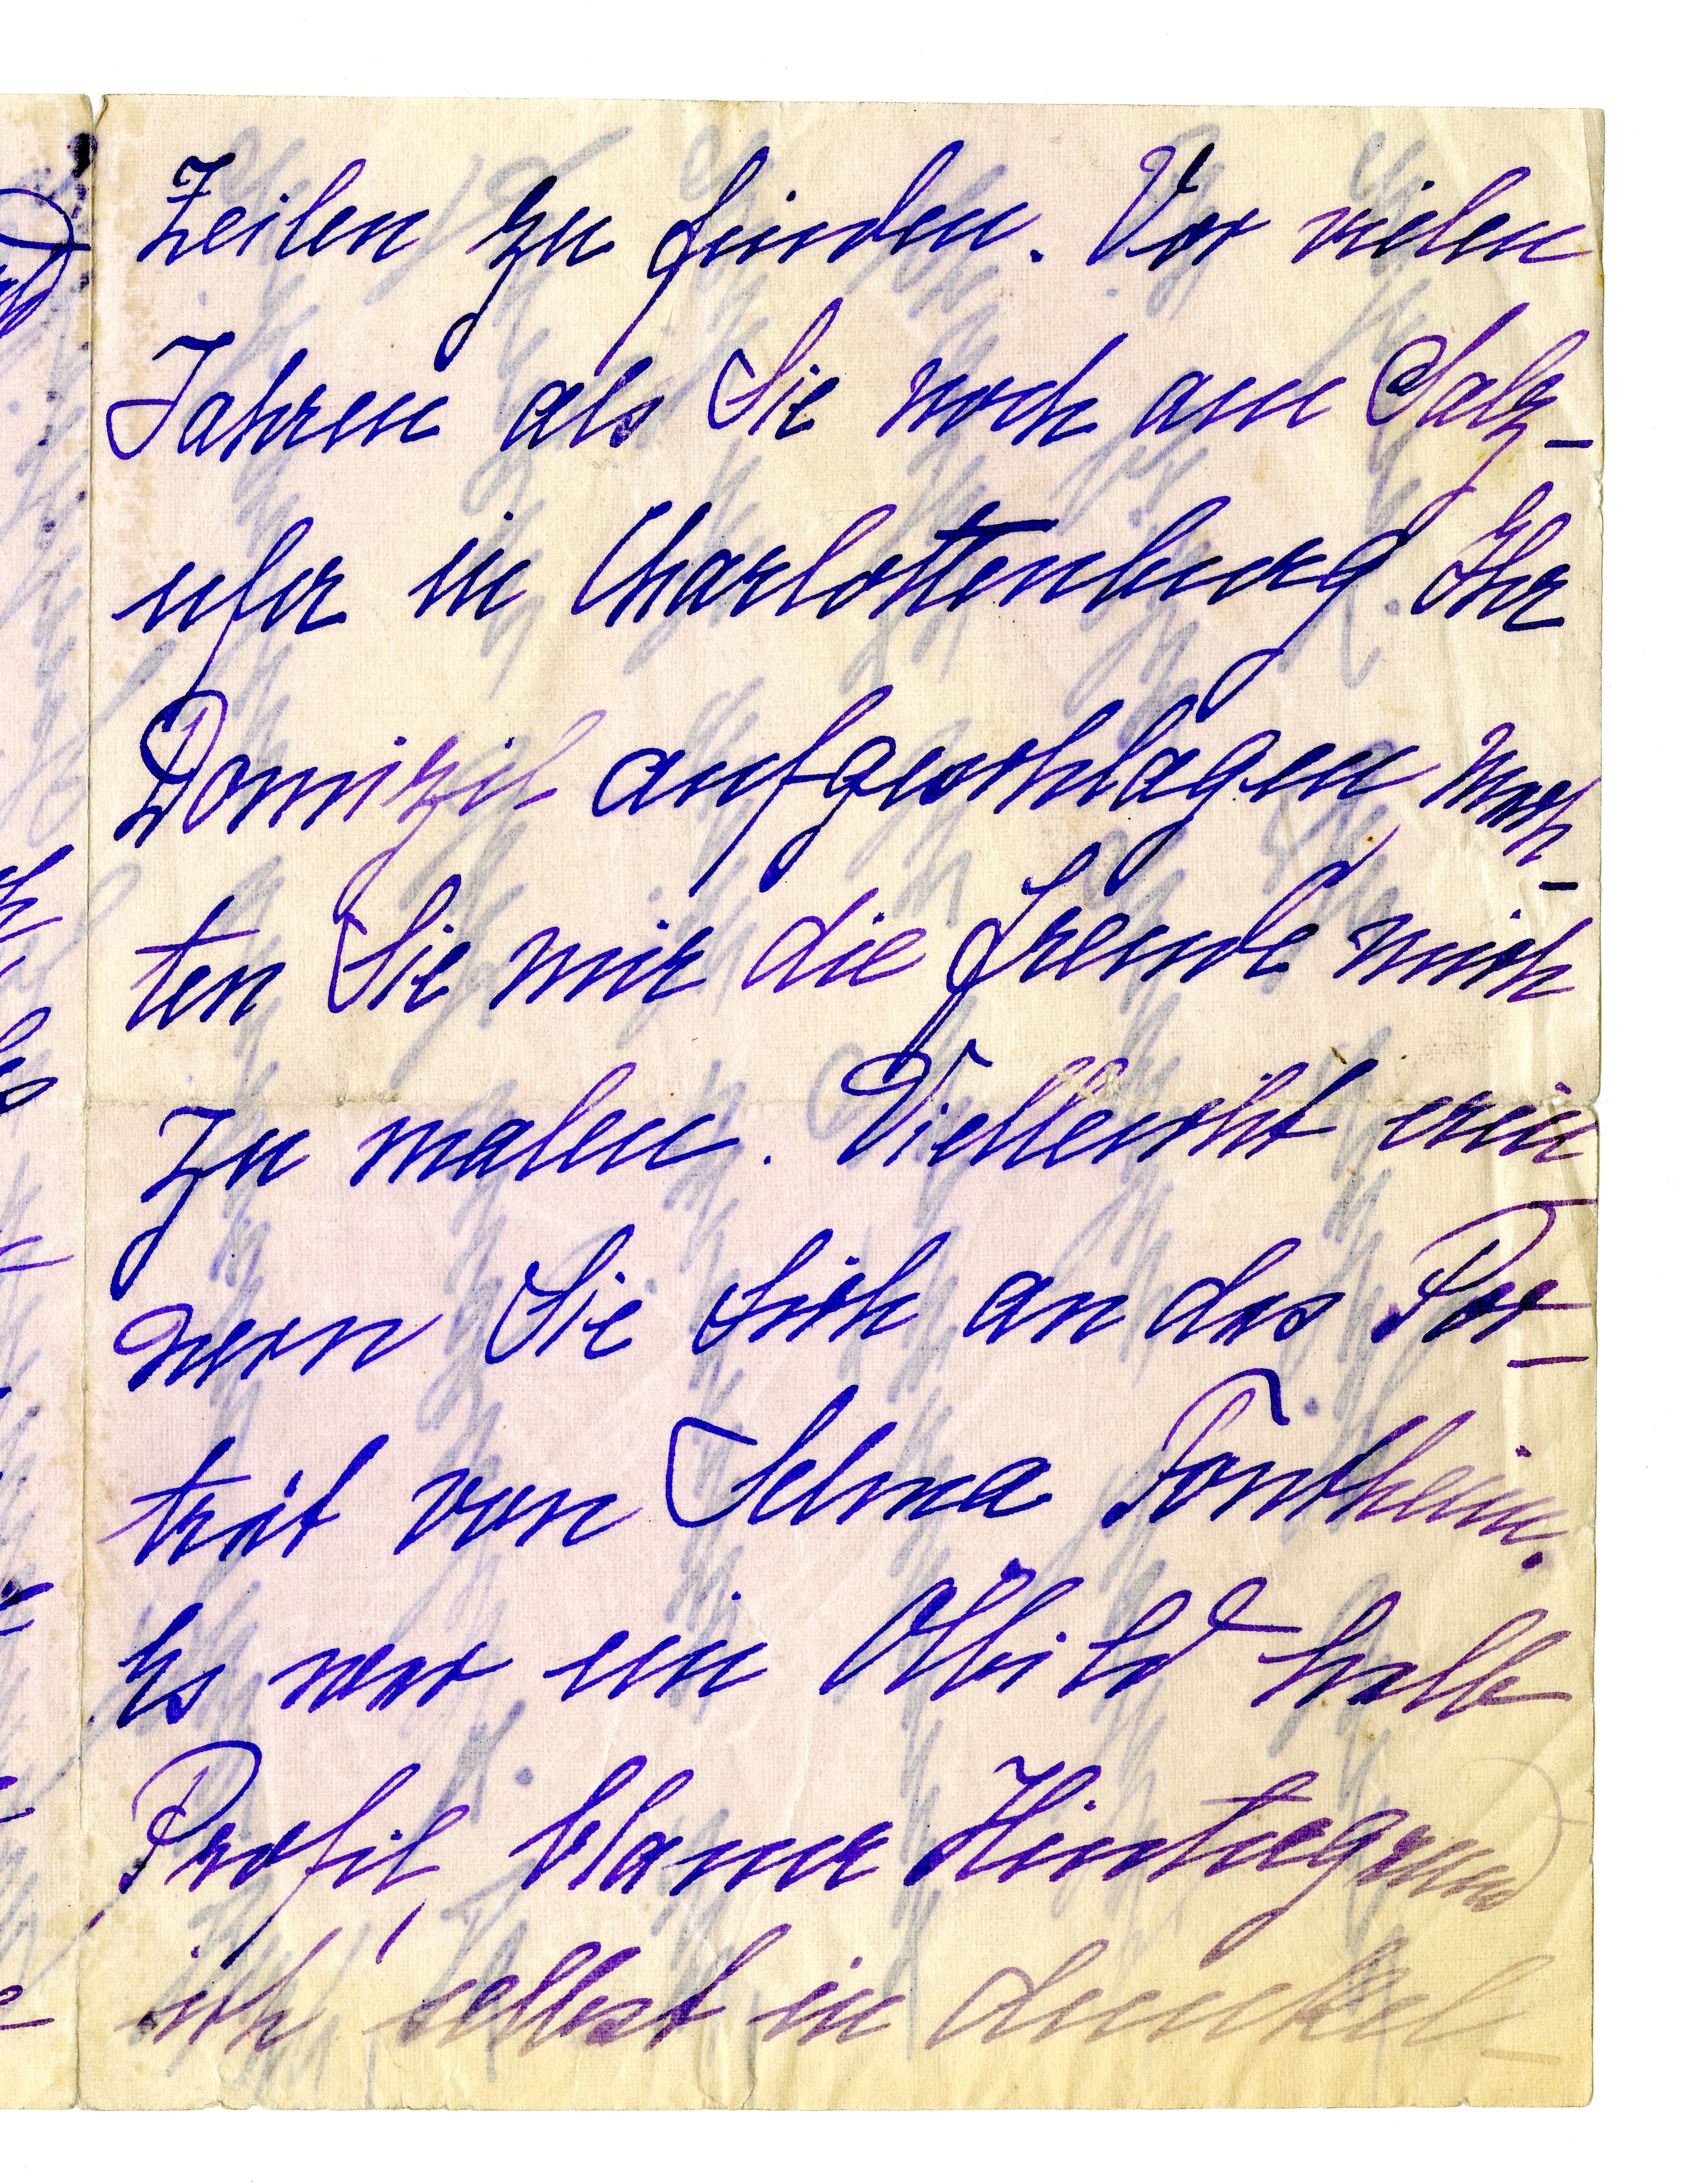 Zeilen zu finden. Vor vielen
Jahren als Sie noch am Salz-
ufer in Charlottenburg Ihr
Domizil aufgeschlagen mach-
ten Sie mir die Freude mich
zu malen. Vielleicht erin
nern Sie Sich an das Por-
trät von Selma Tontheim.
Es war ein Ölbild halb
Profil, blauer Hintergrund
ich selbst in dunkel-